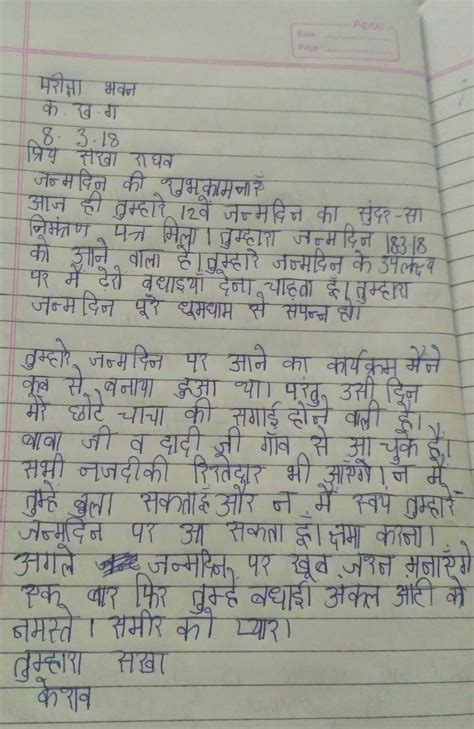 परीक्षा भवन
क. ख. ग
8. 3.18
प्रिय सखा राघव
जन्मदिन की शुभकामनाएँ
आज ही तुम्हारे 12वें जन्मदिन का सुंदर-सा
निमंत्रण पत्र मिला। तुम्हारा जन्मदिन 18.3.18
को आने वाला है। तुम्हारे जन्मदिन के उपलक्ष्य
पर मैं ढेरो बधाइया देना चाहता हूँ। तुम्हारा
जन्मदिन पूरे धूमधाम से संपन्न हो।
तुम्हारे जन्मदिन पर आने का कार्यक्रम मैंने
कब से बनाया हुआ था। परंतु उसी दिन
मेरे छोटे चाचा की सगाई होने वाली है।
बाबा जी व दादी जी गाँव से आ चुके हैं।
सभी नजदीकी रिश्तेदार भी आएँगे। न मैं
तुम्हें बुला सकता हूँ और न मैं स्वयं तुम्हारे
जन्मदिन पर आ सकता हूँ। क्षमा करना।
अगले जन्मदिन पर खूब जश्न मनाएँगे
एक बार फिर तुम्हें बधाई। अंकल आंटी को
नमस्ते। समीर को प्यार।
तुम्हारा सखा
केशव